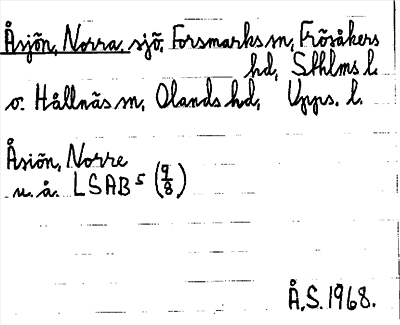 Åsjön, Norra, sjö. Forsmarks sn, Frösåkers
hd, Sthlms l.
o. Hållnäs sn, Olands hd, Upps. l.
Åsiön, Norre
u. å. LSAB 5 (9/8)
Å.S. 1968.